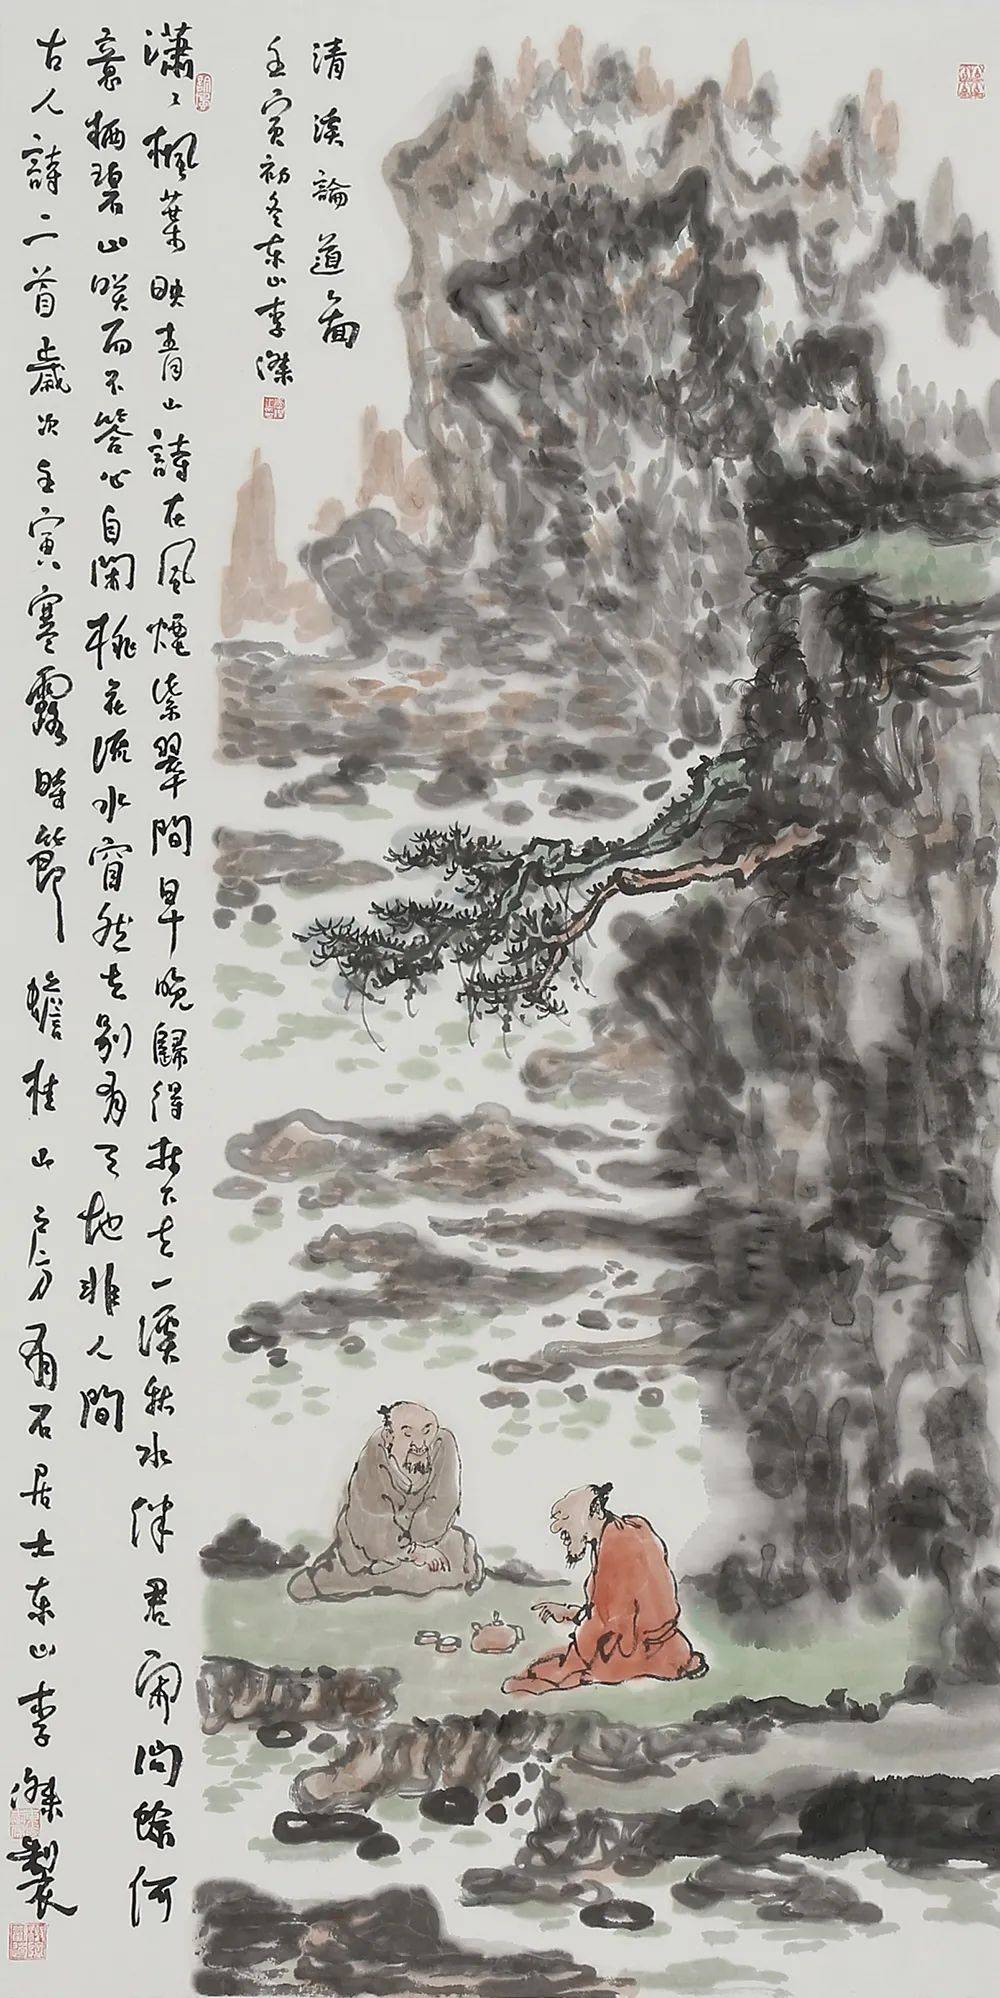 清溪論道圖
壬寅初冬東山李傑
瀟〻楓葉映青山詩在風煙紫翠間早晚歸得林下去一溪秋水伴君閑問余何
意栖碧山咲而不答心自閑桃花流水窅然去別有天地非人間
古人詩二首歲次壬寅寒露時節 蟾桂山房有石居士東山李傑製